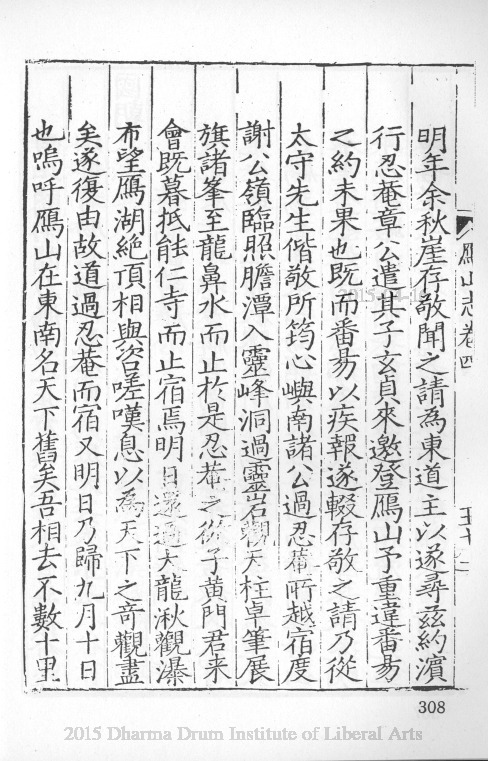 明年余秋崖存敬聞之請為東道主以遂尋茲約濵
行忍菴章公遣其子玄貞來邀登鴈山予重違番昜
之約未果也既而番昜以疾報遂輟存敬之請乃從
太守先生偕敬所筠心嶼南諸公過忍菴所越宿度
謝公嶺臨照膽潭入靈峰洞過靈岩觀天柱卓筆展
旗諸峯至龍鼻水而止於是忍菴之從子黄門君来
會既暮抵能仁寺而止宿焉明日還過大龍湫觀瀑
布望鴈湖絶頂相與咨嗟嘆息以為天下之竒觀盡
矣遂復由故道過忍菴而宿又明日乃歸九月十日
也嗚呼鴈山在東南名天下舊矣吾相去不數十里
鴈山志卷四
308
2015 Dharma Drum Institute of Liberal Arts